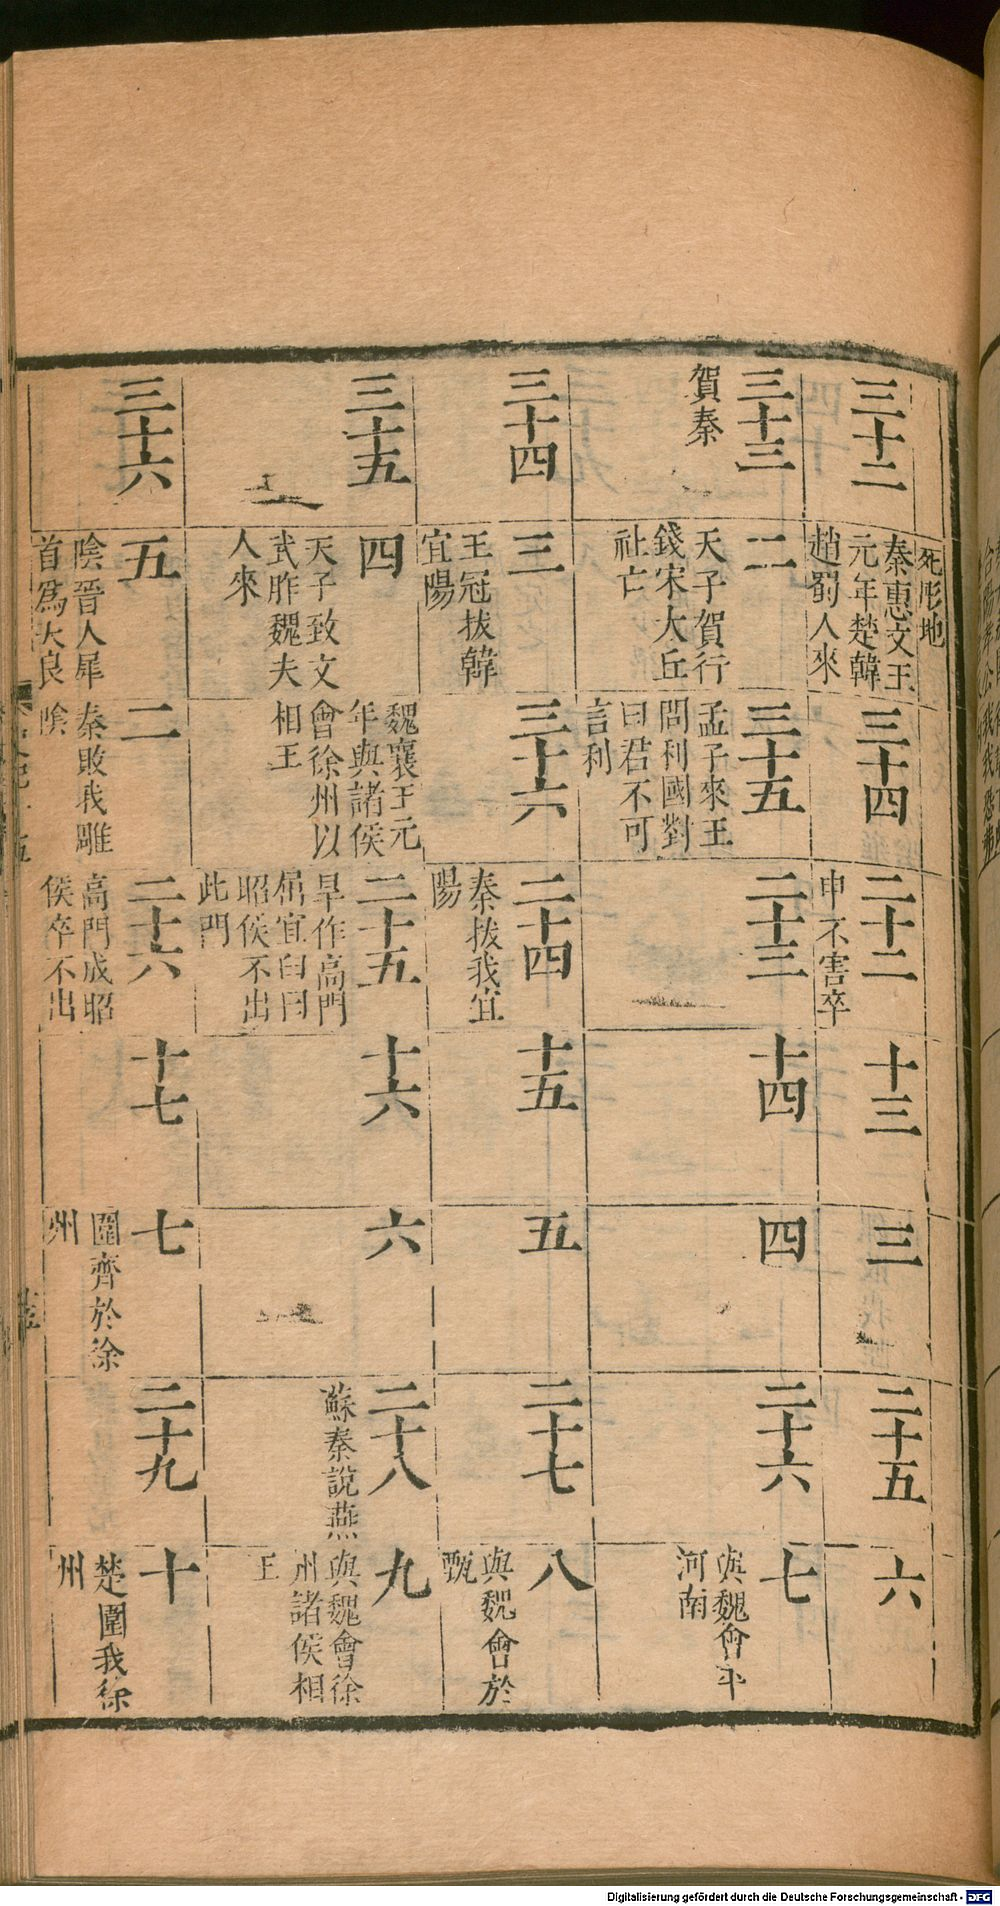 死彤地
三十二
秦惠文王
元年楚韓
趙蜀人來
三十四
二十二
申不害卒
十三
三
二十五
六
三十三
賀秦
二
天子賀行
錢宋大丘
社亡
三十五
孟子來王
問利國對
曰君不可
言利
二十三
十四
四
二十六
七
與魏會平
河南
三十四
三
王冠拔韓
宜陽
三十六
二十四
秦拔我宜
陽
十五
五
二十七
八
與魏會於
甄
三十五
四
天子致文
武胙魏夫
人來
魏襄王元
年與諸侯
會徐州以
相王
二十五
旱作高門
屈宜臼曰
昭侯不出
此門
十六
六
二十八
蘇秦說燕
九
與魏會徐
州諸侯相
王
三十六
五
陰晉人犀
首爲大良
二
秦敗我雕
陰
二十六
高門成昭
侯卒不出
十七
七
圍齊於徐
州
二十九
十
楚圍我徐
州
Digitalisierung gefördert durch die Deutsche Forschungsgemeinschaft - DFG